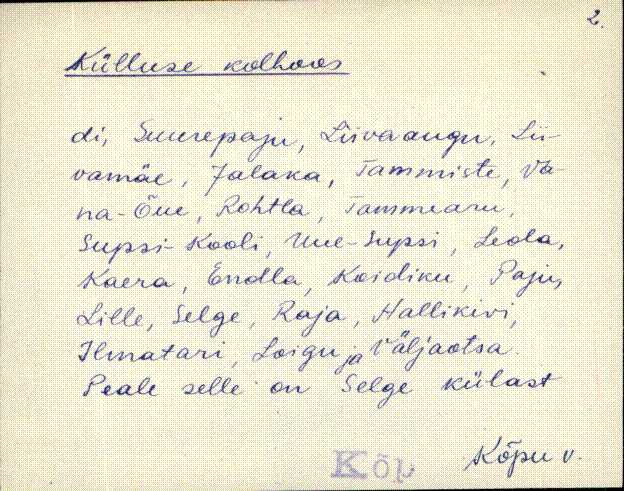 2.
Külluse kolhoos
di, Suurepaju, Liivaaugu, Lii-
vamäe, Jalaka, Tammiste, Va-
na-Õue, Rohtla, Tammearu,
Supsi-Kooli, Uue-Supsi, Leola,
Kaera, Endla, Koidiku, Paju,
Lille, Selge, Raja, Hallikivi,
Ilmatari, Loigu ja Väljaotsa.
Peale selle on Selge külast
Kõp Kõpu v.